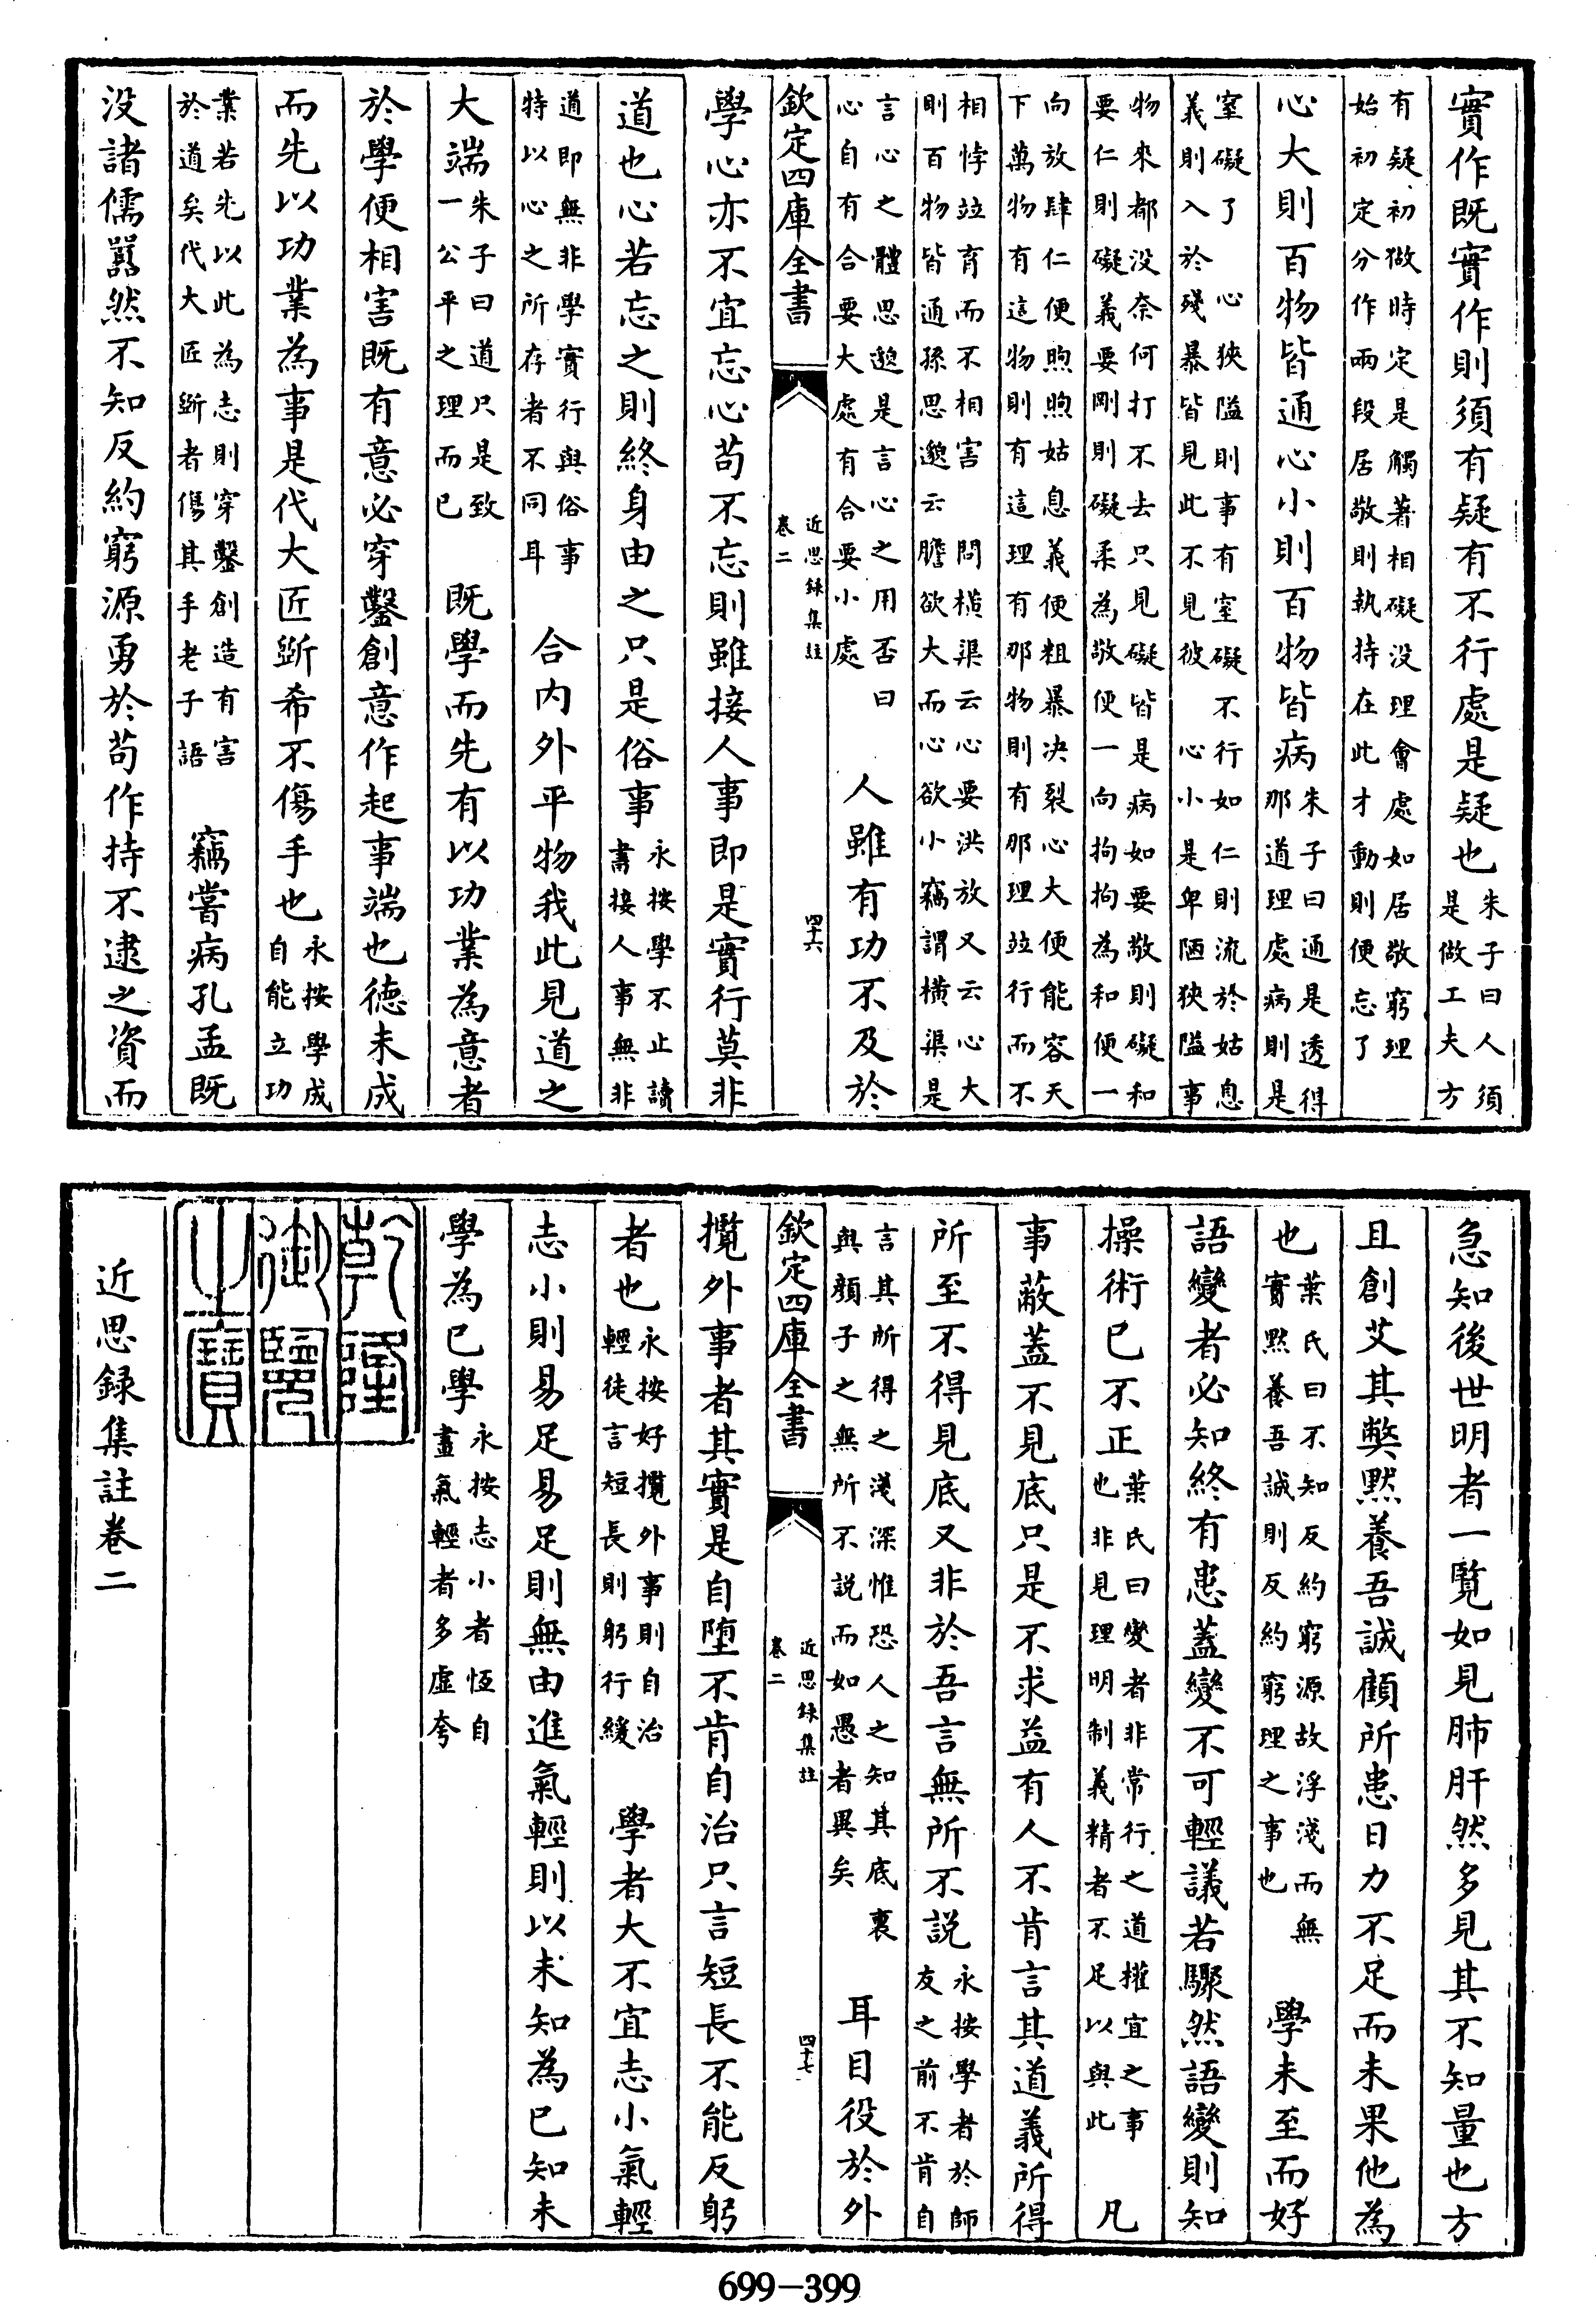 實作既實作則須有疑有不行處是疑也朱子曰人須是做工夫方
有疑初做時定是觸著相礙没理會處如居敬窮理始初定分作兩段居敬則執持在此才動則便忘了
心大則百物皆通心小則百物皆病朱子曰通是透得那道理處病則是
窒礙了 心狹隘則事有窒礙不行如仁則流於姑息義則入於殘暴皆見此不見彼 心小是卑陋狹隘事
物來都没奈何打不去只見礙皆是病如要敬則礙和要仁則礙義要剛則礙柔為敬便一向拘拘為和便一
向放肆仁便煦煦姑息義便粗暴决裂心大便能容天下萬物有這物則有這理有那物則有那理竝行而不
相悖竝育而不相害 問横渠云心要洪放又云心大則百物皆通孫思邈云膽欲大而心欲小竊謂横渠是
言心之體思邈是言心之用否曰心自有合要大處有合要小處 人雖有功不及於
欽定四庫全書 近思録集註 卷二 四十六
學心亦不宜忘心苟不忘則雖接人事即是實行莫非
道也心若忘之則終身由之只是俗事永按學不止讀書接人事無非
道即無非學實行與俗事特以心之所存者不同耳 合内外平物我此見道之
大端朱子曰道只是致一公平之理而已 既學而先有以功業為意者
於學便相害既有意必穿鑿創意作起事端也德未成
而先以功業為事是代大匠斲希不傷手也永按學成自能立功
業若先以此為志則穿鑿創造有害於道矣代大匠斲者傷其手老子語 竊嘗病孔孟既
没諸儒囂然不知反約窮源勇於苟作持不逮之資而
急知後世明者一覽如見肺肝然多見其不知量也方
且創艾其獘默養吾誠顧所患日力不足而未果他為
也葉氏曰不知反約窮源故浮淺而無實默養吾誠則反約窮理之事也 學未至而好
語變者必知終有患蓋變不可輕議若驟然語變則知
操術已不正葉氏曰變者非常行之道權宜之事也非見理明制義精者不足以與此 凡
事蔽蓋不見底只是不求益有人不肯言其道義所得
所至不得見底又非於吾言無所不説永按學者於師友之前不肯自
言其所得之淺深惟恐人之知其底裏與顔子之無所不説而如愚者異矣 耳目役於外
欽定四庫全書 近思録集註 卷二 四十七
攬外事者其實是自墮不肯自治只言短長不能反躬
者也永按好攬外事則自治輕徒言短長則躬行緩 學者大不宜志小氣輕
志小則易足易足則無由進氣輕則以未知為已知未
學為已學永按志小者恆自畫氣輕者多虛夸
乾隆御覽之寶
近思録集註卷二
699-399